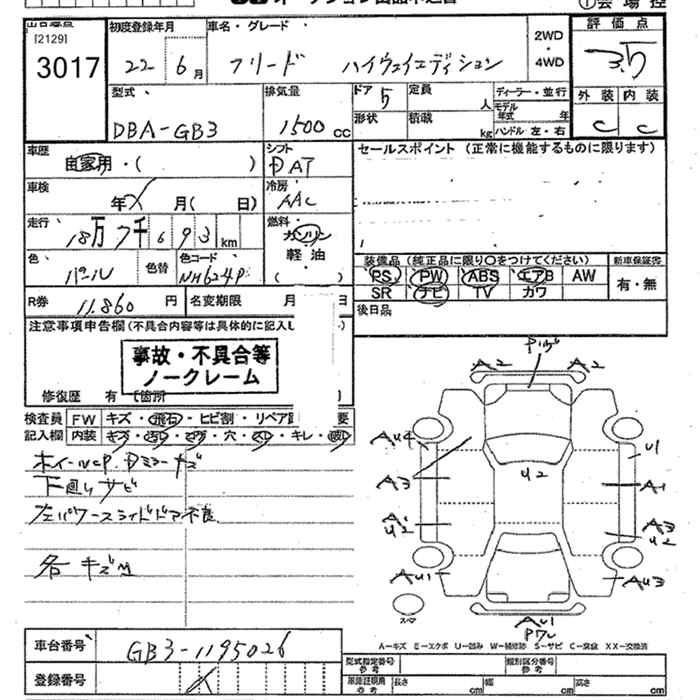 3017
[2129]
初度登録年月
22年 6月
車名・グレード
フリード ハイウェイエディション
2WD
・
4WD
評価点
3.5
型式
DBA-GB3
排気量
1500 cc
ドア 5
形状
定員 人
積載 kg
ディーラー・並行
モデル年式 年
ハンドル 左・右
外装 内装
C C
車歴
自家用・( )
シフト
DAT
セールスポイント (正常に機能するものに限ります)
車検
年 月( 日)
冷房
AAC
走行
18万7千693km
燃料
ガソリン
軽油
( )
色
パール
色替
色コード
NH624P
装備品 (純正品に限り○をつけてください)
新車保証書
PS PW ABS エアB AW
SR ナビ TV カワ
有・無
R券 11,860円
名変期限 月
後日品
注意事項申告欄(不具合内容等は具体的に記入し
事故・不具合等
ノークレーム
修復歴 有 〔箇所
検査員記入欄
FW キズ・飛石・ヒビ割・リペア 要
内装 キズ・・・穴・・キレ・
下廻りサビ
左パワースライドドア不良
各キズ凹
Pツブ
A2 A2
AU4
A3
U2
U1
A1
A3
U2
AU1
AU3
AU1
スペア
A-キズ E-エクボ U-凹み W-補修跡 S-サビ C-腐食 XX-交換済
車台番号
GB3-1195026
登録番号
型式指定番号
参考
類別区分番号
参考
長さ cm
幅 cm
高さ cm